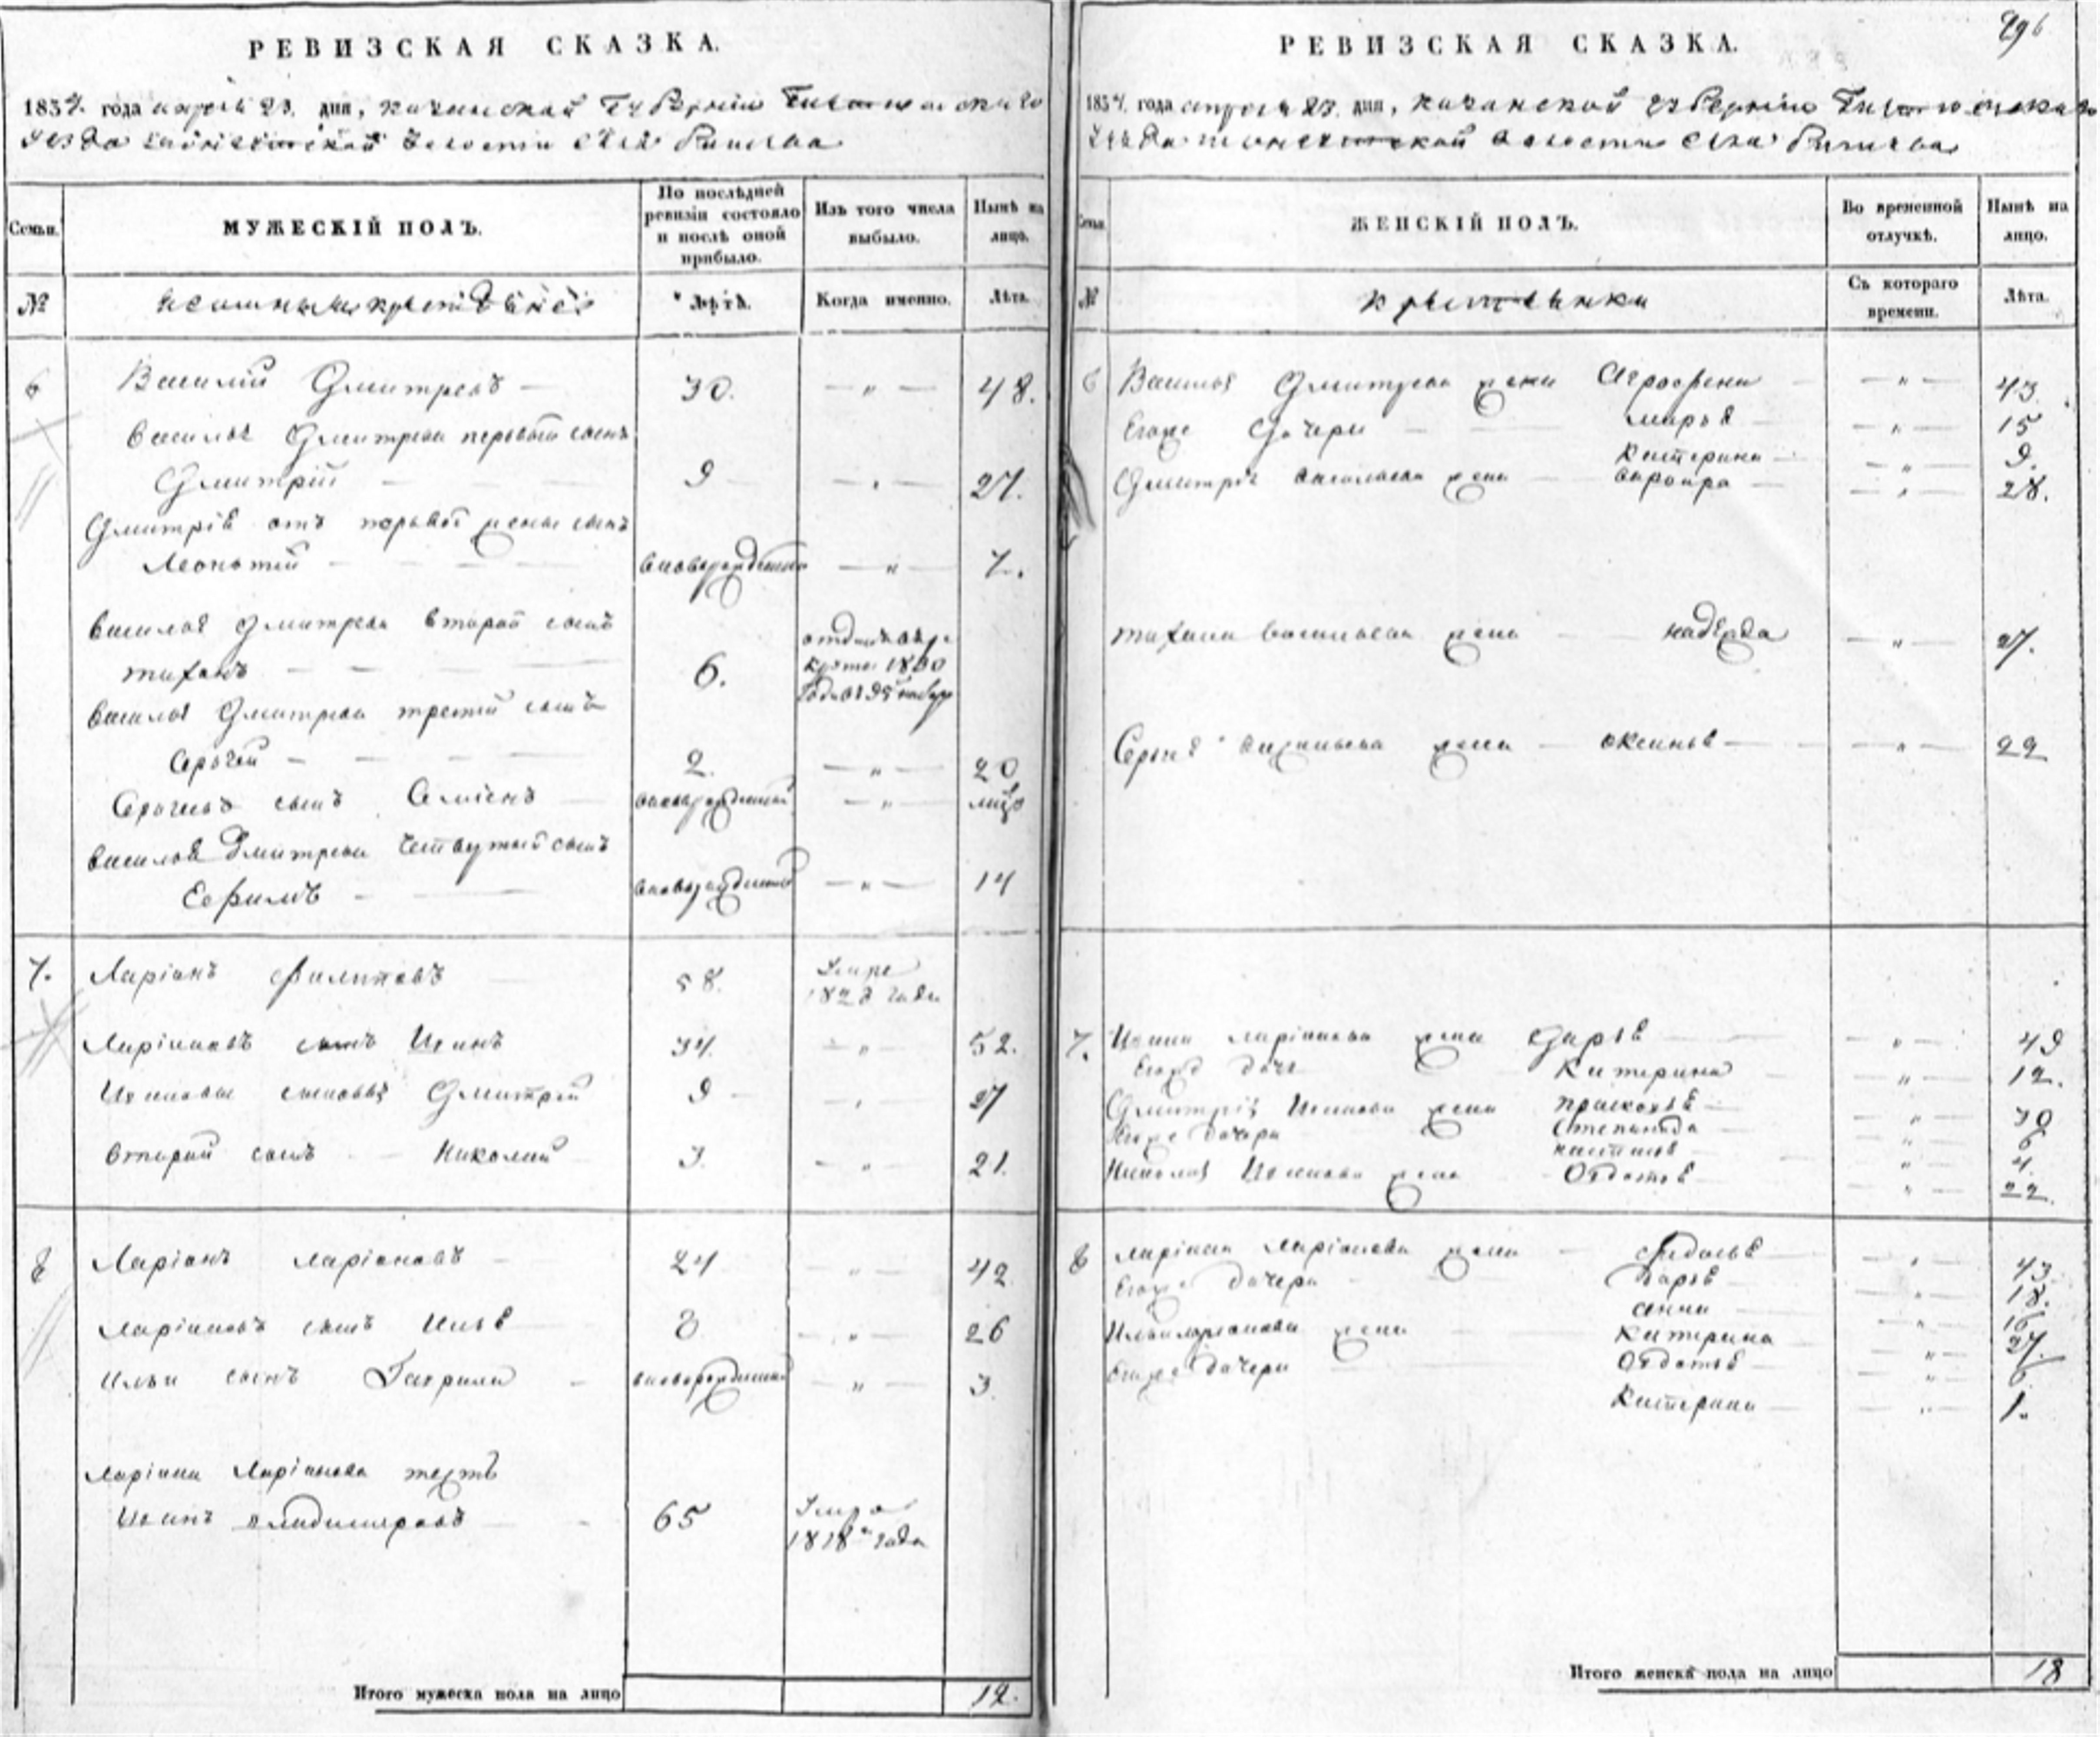 896
РЕВИЗСКАЯ СКАЗКА.
1834. года апреля 23. дня, казанской Губернии
уезда волости села
Семьи.
МУЖЕСКІЙ ПОЛЪ.
По послѣдней ревизіи состояло и послѣ оной прибыло.
Изъ того числа выбыло.
Нынѣ на лицо.
№
Лѣта.
Когда именно.
Лѣта.
6 Василий Дмитревъ — 30. — „ — 48.
Василья Дмитрева первый сынъ
Дмитрий — 9 — „ — 27.
Дмитрія отъ первой жены сынъ
Леонтий — вновьрожденный — „ — 7.
Василья Дмитрева второй сынъ
тихонъ — 6. отданъ в рекруты 1830 года
Василья Дмитрева третий сынъ
Сергей — 2. — „ — 20
Сергеевъ сынъ Семенъ вновьрожденный — „ —
Василья Дмитрева четвертый сынъ
Ефимъ — вновьрожденный — „ — 14
7. Ларіонъ Филиповъ — 58. умре 1828 года
Ларіоновъ сынъ Иванъ 34. — „ — 52.
Ивановы сыновья Дмитрей 9 — „ — 27
второй сынъ — Николай 3. — „ — 21.
8 Ларіонъ Ларіоновъ — 24 — „ — 42
Ларіоновъ сынъ Илья 8 — „ — 26
Ильи сынъ Гаврила — вновьрожденный — „ — 3.
Ларіона Ларіонова тесть
Иванъ владимеровъ — 65 умре 1828 года
Итого мужеска пола на лицо 12.
РЕВИЗСКАЯ СКАЗКА.
1834. года апреля 23. дня, казанской губернии
уезда волости села
Семьи.
ЖЕНСКІЙ ПОЛЪ.
Во временной отлучкѣ.
Нынѣ на лицо.
№
крестьянки
Съ котораго времени.
Лѣта.
6 Василья Дмитрева жена Аграфена — „ — 43.
Егоже дочери — марья — „ — 15
Катерина — „ — 9.
Дмитрія васильева жена — варвара — „ — 28.
тихона васильева жена — надежда — „ — 27.
Сергея васильева жена — оксинья — „ — 22
7. Ивана ларіонова жена Дарья — „ — 49
Егоже дочь Катерина — „ — 12.
Дмитрія Иванова жена прасковья — „ — 30
Егоже дочери Степанида — „ — 6
настасья — „ — 4.
Николая Иванова жена — Овдотья — „ — 22.
8 Ларіона Ларіонова жена — Федосья — „ — 43
Егоже дочери дарья — „ — 18.
анна — „ — 16
Ильи ларионова жена — Катерина — „ — 27.
Егоже дочери Овдотья — „ — 6
Катерина — „ — 1.
Итого женска пола на лицо 18